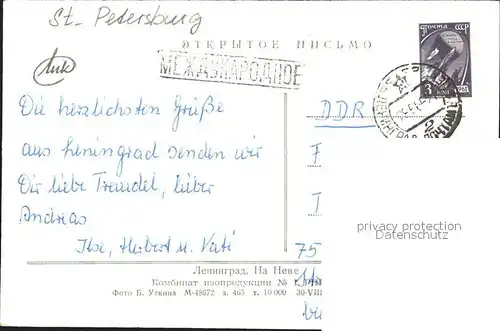 St. Petersburg
ОТКРЫТОЕ ПИСЬМО
ПОЧТА СССР
МЕЖДУНАРОДНОЕ
Die herzlichsten Grüße
aus Leningrad senden wir
Dir liebe Traudel, lieber
Andreas
Ilse, Herbert u. Vati
DDR
F
T
privacy protection
Datenschutz
75
Ленинград. На Неве
Комбинат изопродукции №
Фото Б. Уткина М-18672 з. 465 т. 10.000 30-VIII